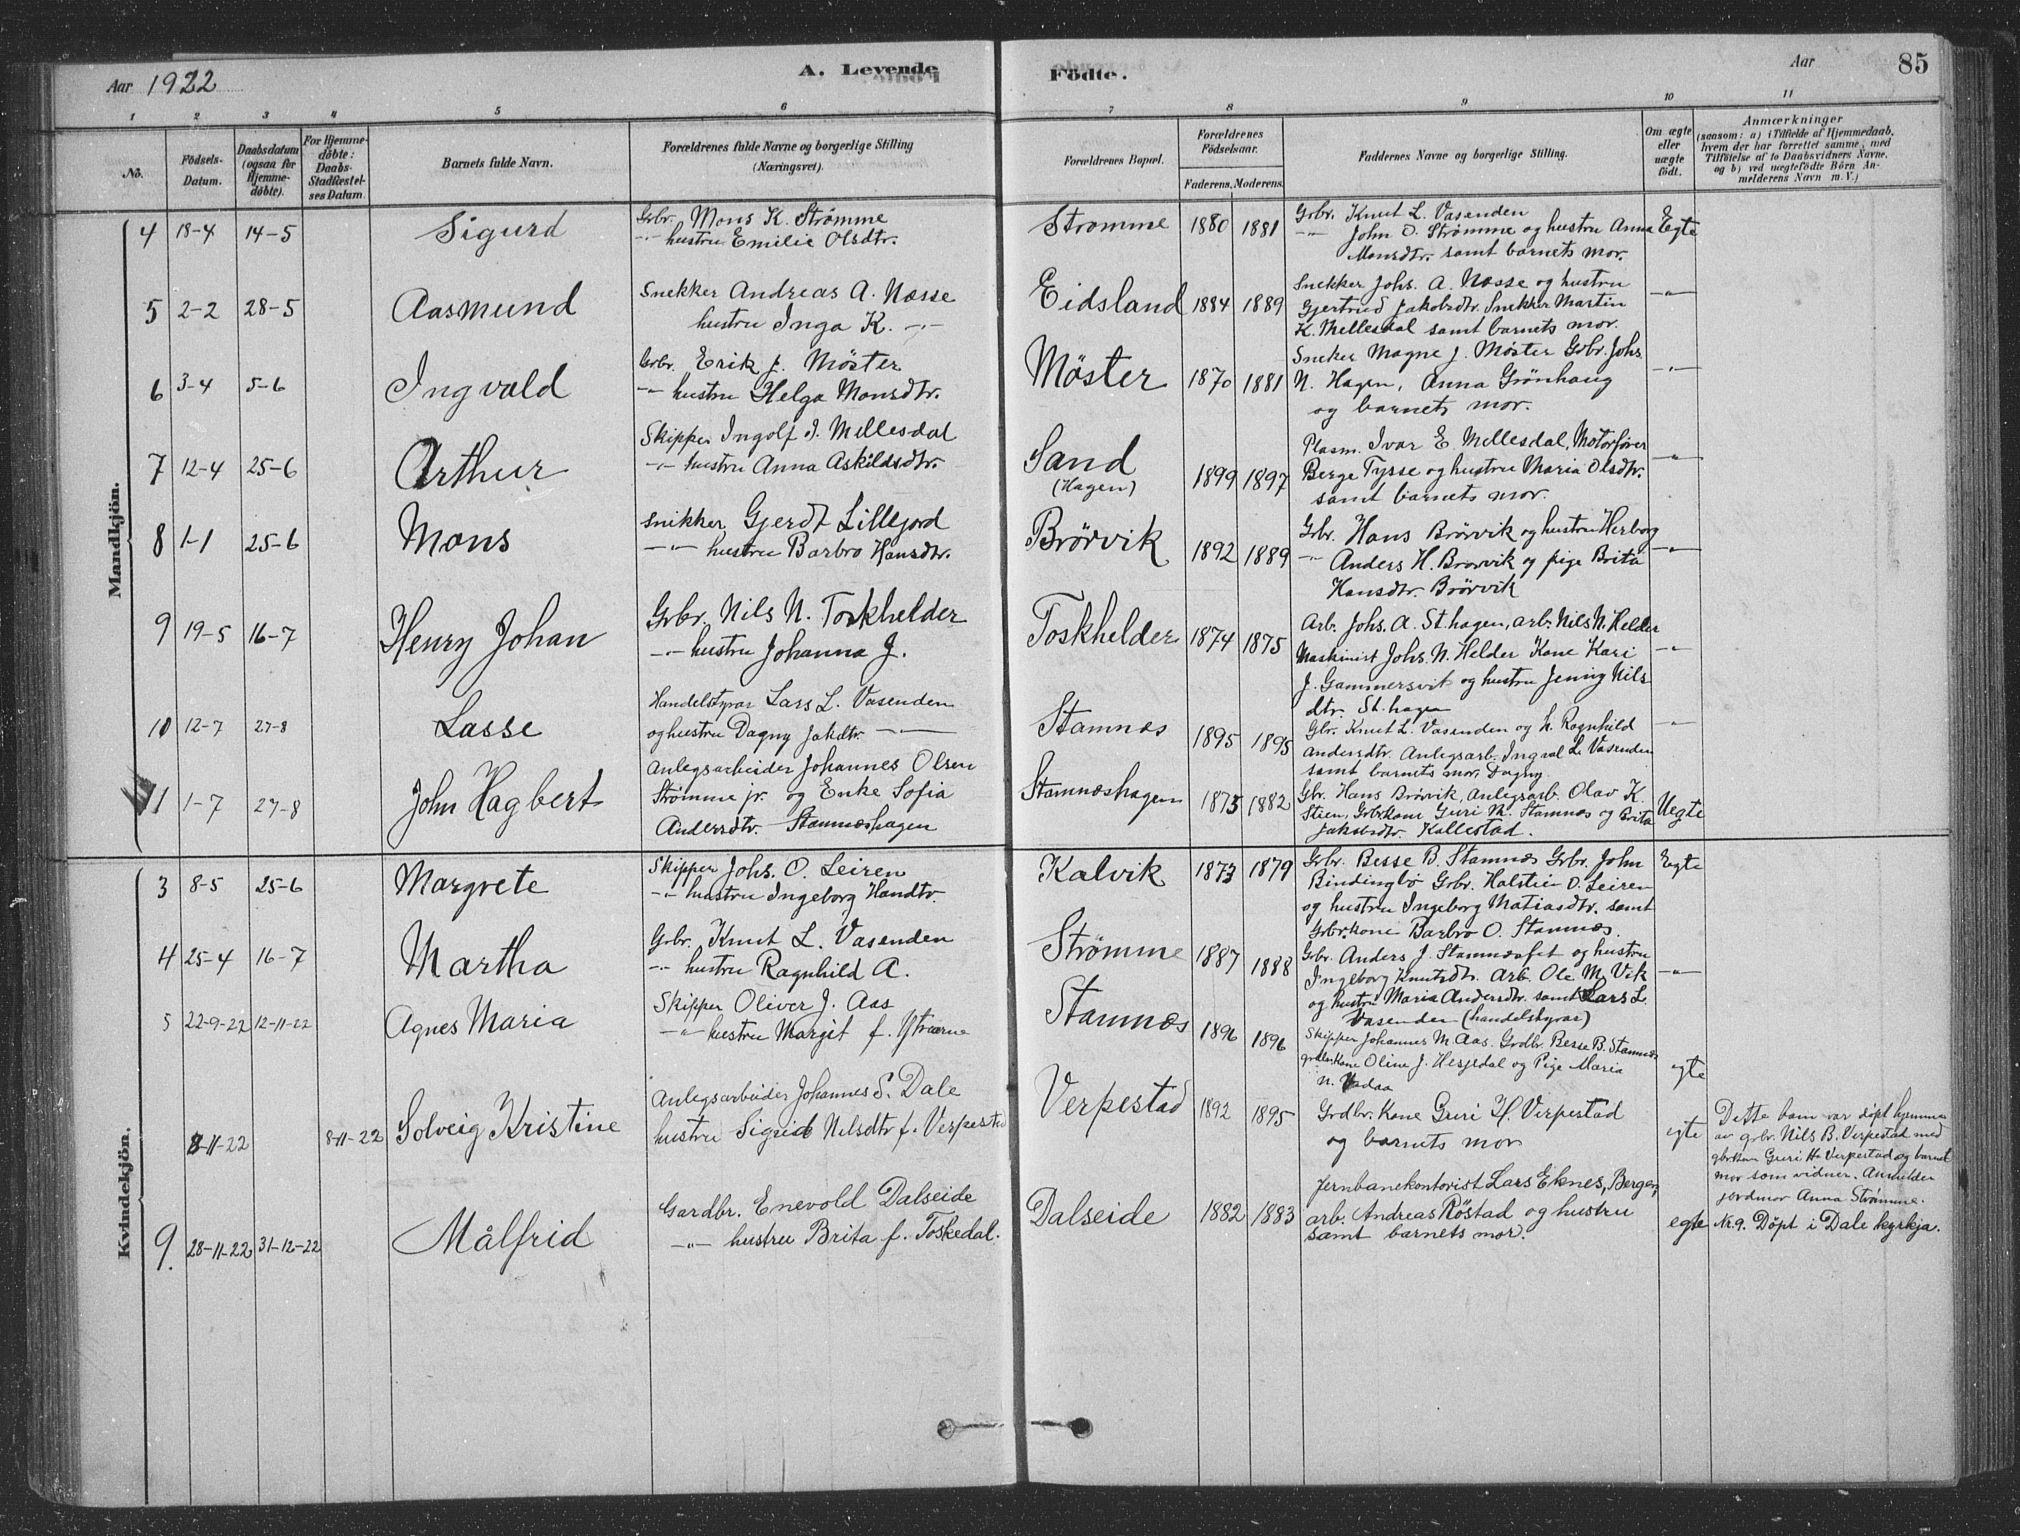 Aar 1922
A. Levende
Födte.
Aar
85
1 2 3 4 5 6 7 8 9 10 11
No.
Födsels-Datum.
Daabsdatum (ogsaa for Hjemme-döbte).
For Hjemme-döbte: Daabs-Stadfæstel-ses Datum.
Barnets fulde Navn.
Forældrenes fulde Navne og borgerlige Stilling (Næringsvei).
Forældrenes Bopæl.
Forældrenes Födselsaar.
Faderens. Moderens.
Faddernes Navne og borgerlige Stilling.
Om ægte eller uægte födt.
Anmærkninger
(saasom: a) i Tilfælde af Hjemmedaab,
hvem der har forrettet samme, med
Tilföielse af to Daabsvidners Navne,
og b) ved uægtefödte Börn An-
melderens Navn m. V.)
Mandkjön.
4 18-4 14-5 Sigurd
Gbr. Mons K. Strømme
-"- hustru Emilie Olsdtr.
Strømme 1880 1881
Gbr. Knut L. Vasenden
-"- John O. Strømme og hustru Anna
Monsdtr. samt barnets mor.
Egte
5 2-2 28-5 Aasmund
Snekker Andreas A. Næsse
hustru Inga K. -"-
Eidsland 1884 1889
Snekker Johs. A. Næsse og hustru
Gjertrud Jakobsdtr. Snekker Martin
K. Mellesdal samt barnets mor.
-"-
6 3-4 5-6 Ingvald
Gbr. Erik J. Møster
-"- hustru Helga Monsdtr.
Møster 1870 1881
Sneker Magne J. Møster Gbr. Johs
N. Hagen, Anna Grønhaug
og barnets mor.
-"-
7 12-4 25-6 Arthur
Skipper Ingolf I. Mellesdal
-"- hustru Anna Askildsdtr.
Sand
(Hagen)
1899 1897
Plasm. Ivar E. Mellesdal, Motorfører
Berge Tysse og hustru Maria Olsdtr.
samt barnets mor.
-"-
8 1-1 25-6 Mons
Snikker Gjerdt Lillejord
-"- hustru Barbro Hansdtr.
Brørvik 1892 1889
Gbr. Hans Brørvik og hustru Herborg
-"- Anders H. Brørvik og pige Brita
Hansdtr. Brørvik
-"-
9 19-5 16-7 Henry Johan
Gbr. Nils N. Toskhelder
-"- hustru Johanna J.
Toskhelder 1874 1875
Arb. Johs. A. St.hagen, arb. Nils N. Helder
Maskinist Johs. N. Helder Kone Kari
J. Gammersvik og hustru Jenny Nils
dtr. St.hagen
-"-
10 12-7 27-8 Lasse
Handelstyrar Lars L. Vasenden
og hustru Dagny Jakdtr. -"-
Stamnæs 1895 1895
Gbr. Knut L. Vasenden og h. Ragnhild
Andersdtr. Anlegsarb. Ingval L. Vasenden
samt barnets mor, Dagny
-"-
11 1-7 27-8 John Hagbert
Anlegsarbeider Johannes Olsen
Strømme jr. og Enke Sofia
Andersdtr. Stamnæshagen
Stamnæshagen 1875 1882
Gbr. Hans Brørvik, Anlegsarb. Olav K.
Stien, Gbrkone Guri M. Stamnæs og Brita
Jakobsdtr. Kallestad.
Uegte
Kvindekjön.
3 8-5 25-6 Margrete
Skipper Johs. O. Leiren
-"- hustru Ingeborg Handtr.
Kalvik 1873 1879
Gbr. Besse B. Stamnæs Gbr. John
Bindingbø Gbr. Halstein O. Leiren
og hustru Ingeborg Matiasdtr. samt
Gbr.kone Barbro O. Stamnæs.
Egte
4 25-4 16-7 Martha
Gbr. Knut L. Vasenden
-"- hustru Ragnhild A.
Strømme 1887 1888
Gbr. Anders J. Stamnæset og hustru
Ingeborg Knutsdtr. Arb. Ole M. Vik
og hustru Maria Andersdtr. samt Lars L.
Vasenden (handelstyrar)
-"-
5 22-9-22 12-11-22 Agnes Maria
Skipper Oliver J. Aas
-"- hustru Margit f.
Stamnæs 1896 1896
Skipper Johannes M. Aas. Grdbr. Besse B. Stamnæs
Oline J. Hesjedal og Pige Maria
N. Vadaa
egte
8-11-22 8-11-22 Solveig Kristine
Anlegsarbeider Johannes S. Dale
hustru Sigrid Nilsdtr f. Verpestad
Verpestad 1892 1895
Grdbr. Kone Guri H. Verpestad
og barnets mor
egte
Dette barn var døpt hjemme
av grbr. Nils B. Verpestad med
gbrkon Guri H. Verpestad og barnet
mor som vidner. Anmelder
jordmor Anna Strømme.
9. 28-11-22 31-12-22 Målfrid
Gardbr. Enevold Dalseide
-"- hustru Brita f. Toskedal.
Dalseide 1882 1883
Jernbanekontorist Lars Eknes, Bergen,
arb. Andreas Røstad og hustru
samt barnets mor.
egte
Nr. 9. Döpt i Dale kyrkja.